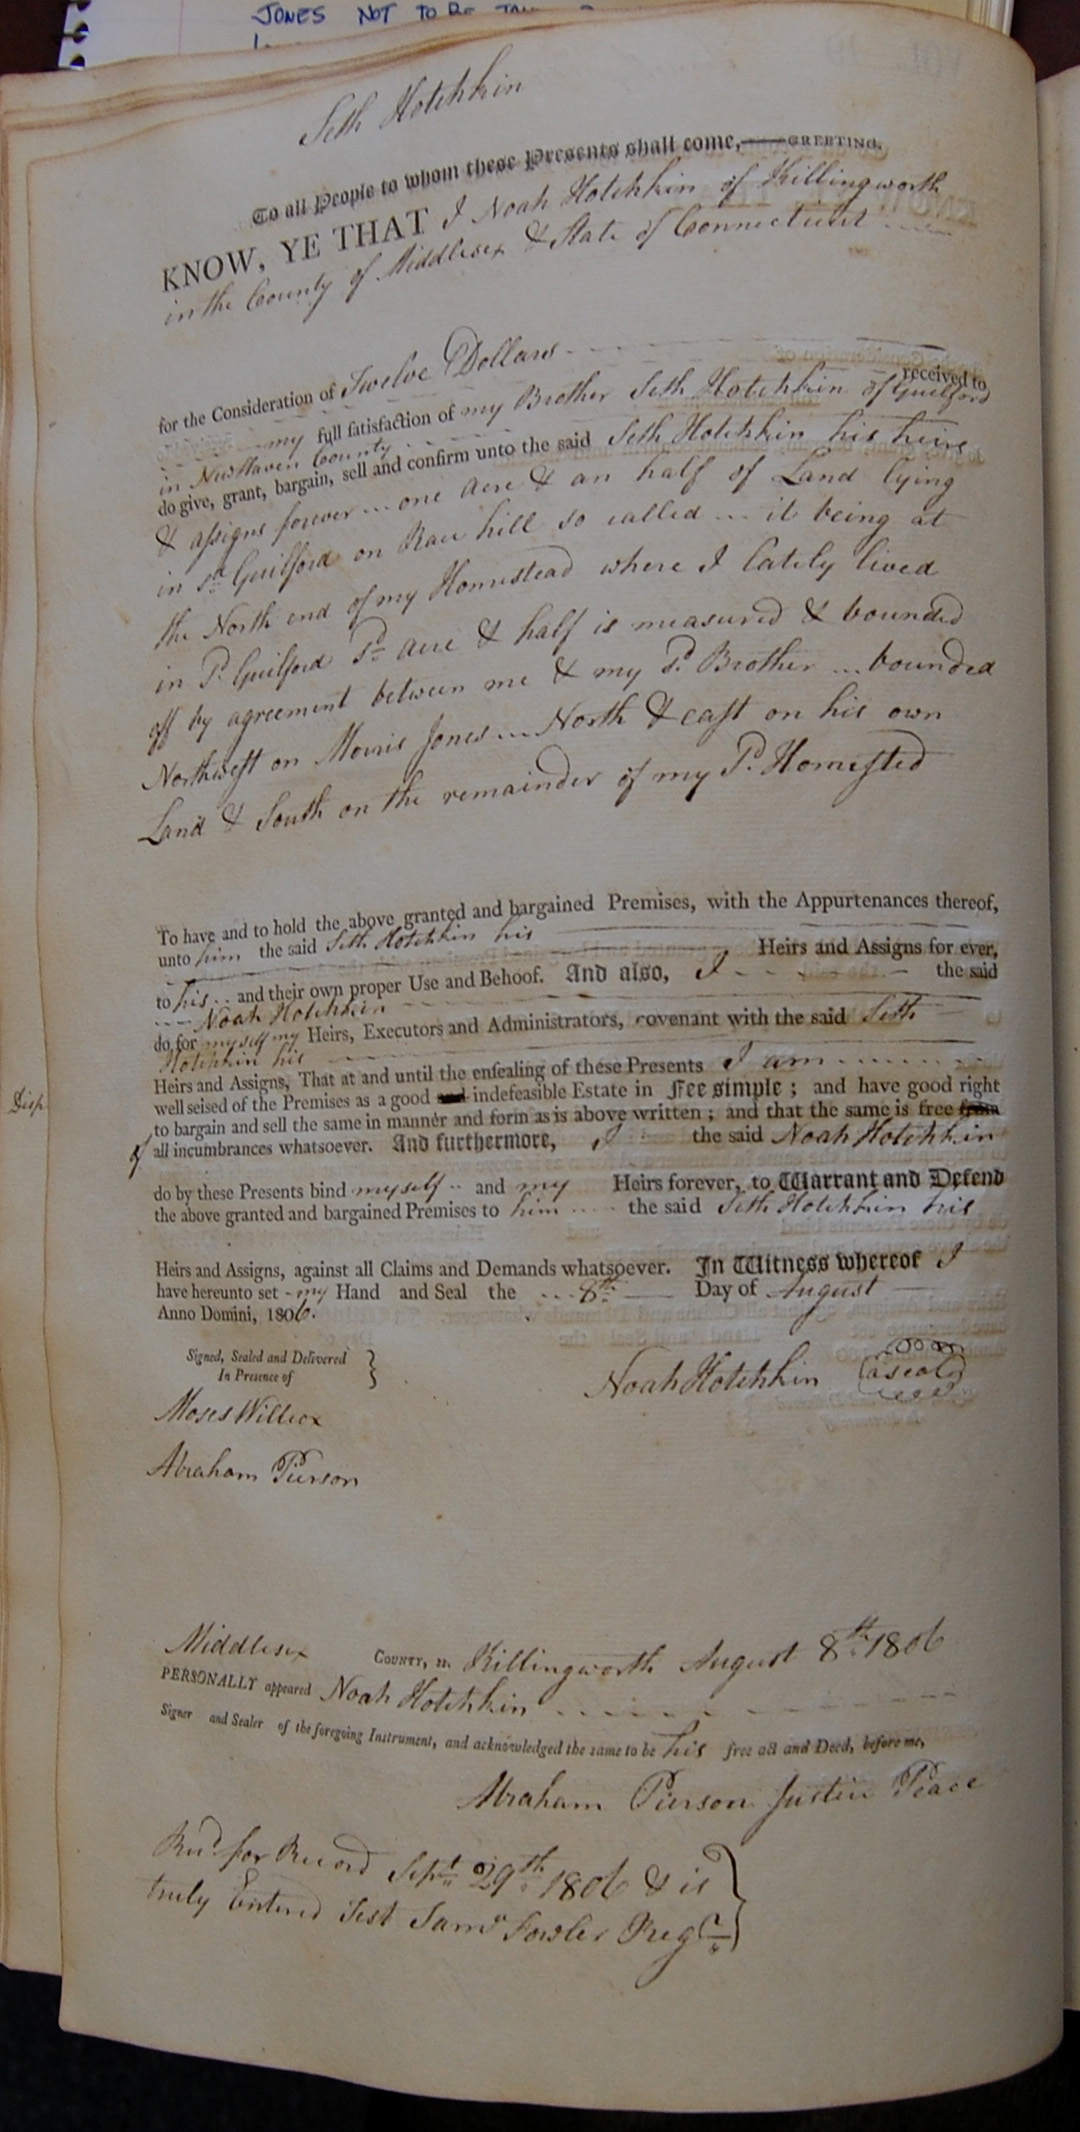 JONES NOT TO BE
Seth Hotchkin
To all People to whom these Presents shall come,—GREETING.
KNOW, YE THAT I Noah Hotchkin of Killingworth
in the County of Middlesex & State of Connecticut
for the Consideration of Twelve Dollars
received to
my full satisfaction of my Brother Seth Hotchkin of Guilford
in NewHaven County
do give, grant, bargain, sell and confirm unto the said Seth Hotchkin his heirs
& assigns forever ... one acre & an half of Land lying
in sd Guilford on Race hill so called ... it being at
the North end of my Homestead where I lately lived
in sd Guilford sd acre & half is measured & bounded
off by agreement between me & my sd Brother ... bounded
Northwest on Morris Jones ... North & east on his own
Land & South on the remainder of my sd Homested
To have and to hold the above granted and bargained Premises, with the Appurtenances thereof,
unto him the said Seth Hotchkin his
Heirs and Assigns for ever,
to his and their own proper Use and Behoof. And also, I the said
Noah Hotchkin
do for myself my Heirs, Executors and Administrators, covenant with the said Seth
Hotchkin his
Heirs and Assigns, That at and until the ensealing of these Presents I am
well seised of the Premises as a good and indefeasible Estate in Fee simple; and have good right
Disp
to bargain and sell the same in manner and form as is above written; and that the same is free from
of all incumbrances whatsoever. And furthermore, I the said Noah Hotchkin
do by these Presents bind myself and my Heirs forever, to Warrant and Defend
the above granted and bargained Premises to him the said Seth Hotchkin his
Heirs and Assigns, against all Claims and Demands whatsoever. In Witness whereof I
have hereunto set my Hand and Seal the 8th Day of August
Anno Domini, 1806.
Signed, Sealed and Delivered
In Presence of
Noah Hotchkin a seal
Moses Willcox
Abraham Pierson
Middlesex COUNTY, ss. Killingworth August 8th 1806
PERSONALLY appeared Noah Hotchkin
Signer and Sealer of the foregoing Instrument, and acknowledged the same to be his free act and Deed, before me,
Abraham Pierson Justice Peace
Recd for Record Sept 29th 1806 & is
truly Entered Test Saml Fowler Regr